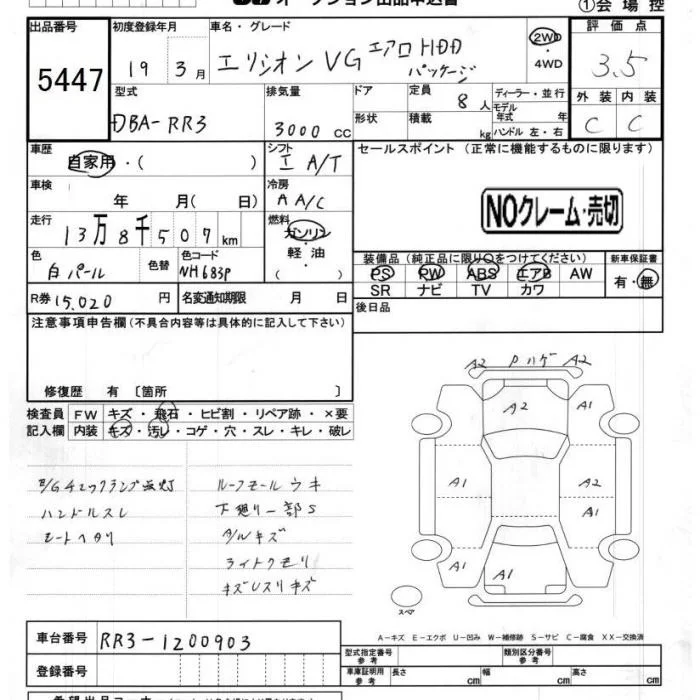 オークション出品申込書
①会場控
出品番号 初度登録年月 車名・グレード 評価点
5447 19 3月 エリシオン VG エアロ HDD パッケージ 2WD ・ 4WD 3.5
型式 排気量 ドア 定員 8人 ディーラー・並行 外装 内装
DBA-RR3 3000cc 形状 積載 kg モデル年式 年 ハンドル 左・右 C C
車歴 自家用・( ) シフト I A/T セールスポイント (正常に機能するものに限ります)
車検 年 月( 日) 冷房 A A/C
NOクレーム・売切
走行 13万8千507km 燃料 ガソリン・軽油
色 白パール 色替 色コード NH683P 装備品(純正品に限り○をつけてください) 新車保証書
PS PW ABS エアB AW 有・無
SR ナビ TV カワ
R券 15,020円 名変通知期限 月 日 後日品
注意事項申告欄(不具合内容等は具体的に記入して下さい)
修復歴 有 〔箇所 〕
検査員 FW キズ・飛石・ヒビ割・リペア跡・×要
記入欄 内装 キズ・汚レ・コゲ・穴・スレ・キレ・破レ
A2 Pハゲ A2
A2 A1
A1 A2
A1
A1 A1
スペア
チェックランプ点灯 ルーフモール ウキ
ハンドルスレ 下廻り一部S
シートヘタリ A/Wキズ
ライトクモリ
キズUスリキズ
A-キズ E-エクボ U-凹み W-補修跡 S-サビ C-腐食 XX-交換済
車台番号 RR3-1200903
型式指定番号 参考 類別区分番号 参考
登録番号 車庫証明用 参考 長さ cm 幅 cm 高さ cm